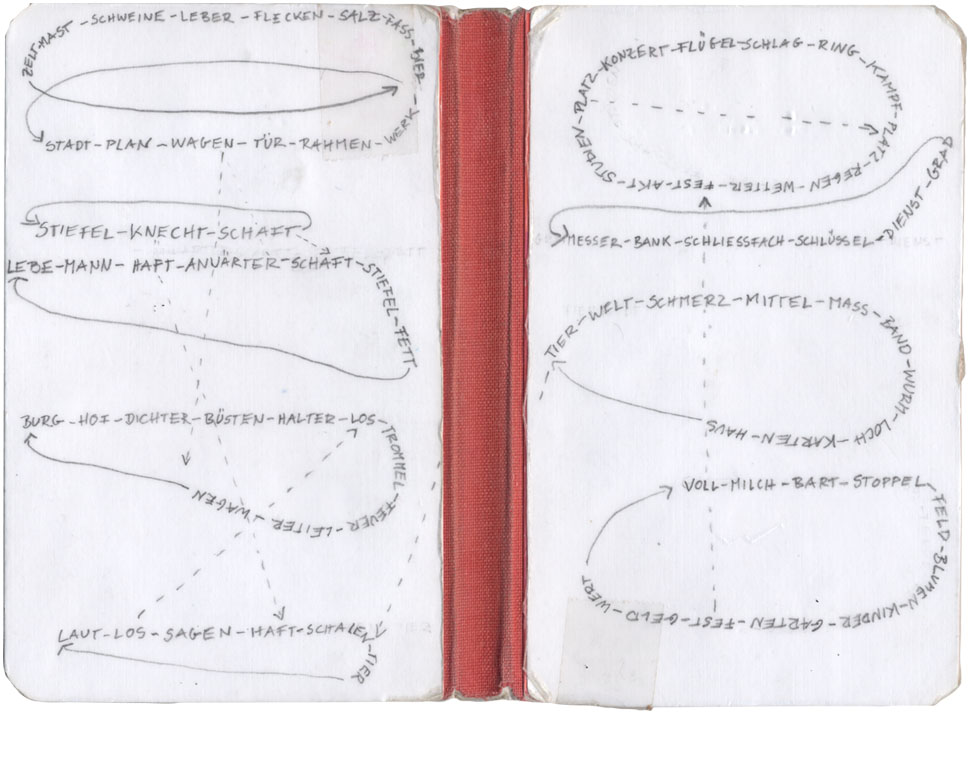 ZELT-MAST-SCHWEINE-LEBER-FLECKEN-SALZ-FASS-BIER-
STADT-PLAN-WAGEN-TÜR-RAHMEN-WERK
STIEFEL-KNECHT-SCHAFT
LEBE-MANN-HAFT-ANWÄRTER-SCHAFT-STIEFEL-FETT
BURG-HOF-DICHTER-BÜSTEN-HALTER-LOS-TROMMEL-FEUER-LEITER-WAGEN
LAUT-LOS-SAGEN-HAFT-SCHALEN-TIER
PLATZ-KONZERT-FLÜGEL-SCHLAG-RING-KAMPF-PLATZ-REGEN-WETTER-FEST-AKT-STUDIEN-
MESSER-BANK-SCHLIESSFACH-SCHLÜSSEL-DIENST-GRAD
TIER-WELT-SCHMERZ-MITTEL-MASS-BAND-WURM-LOCH-KARTEN-HAUS
VOLL-MILCH-BART-STOPPEL-FELD-BLUMEN-KINDER-GARTEN-FEST-GELD-WERT